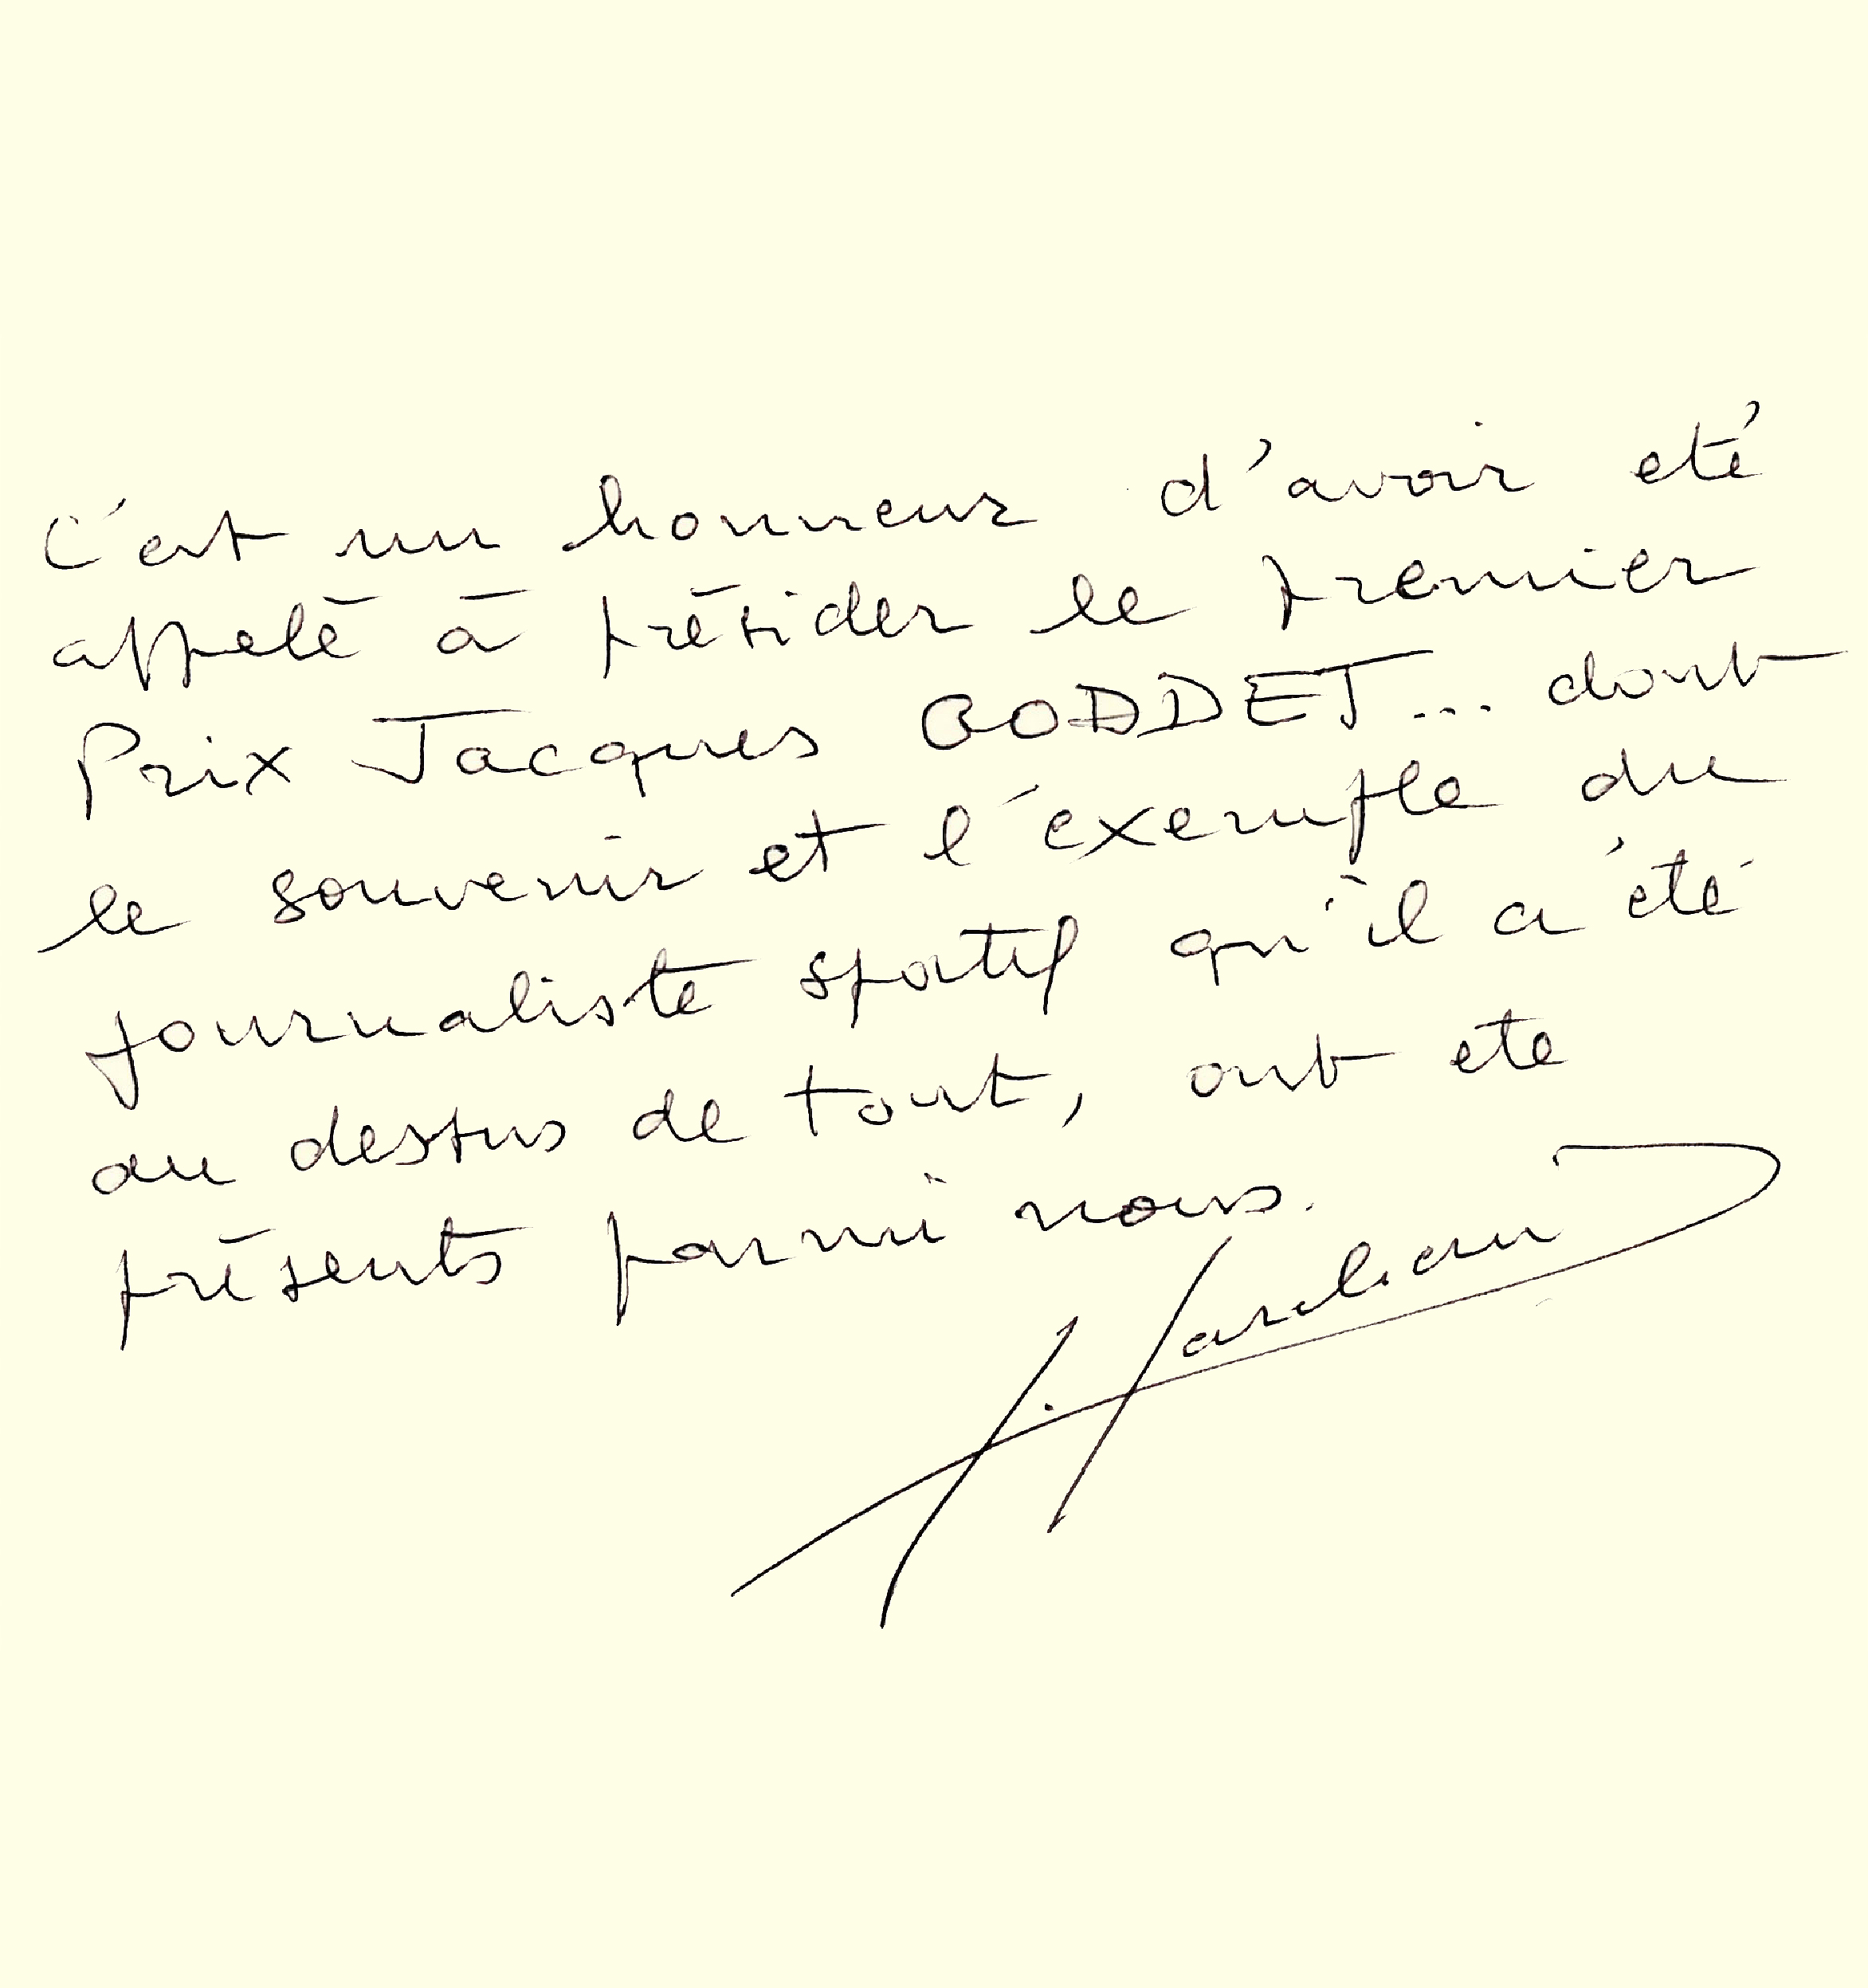 C'est un honneur d'avoir eté
appelé à présider le premier
Prix Jacques GODDET... dont
le souvenir et l'éxemple du
journaliste sportif qu'il a été
au dessus de tout, ont ete
présents parmi nous.